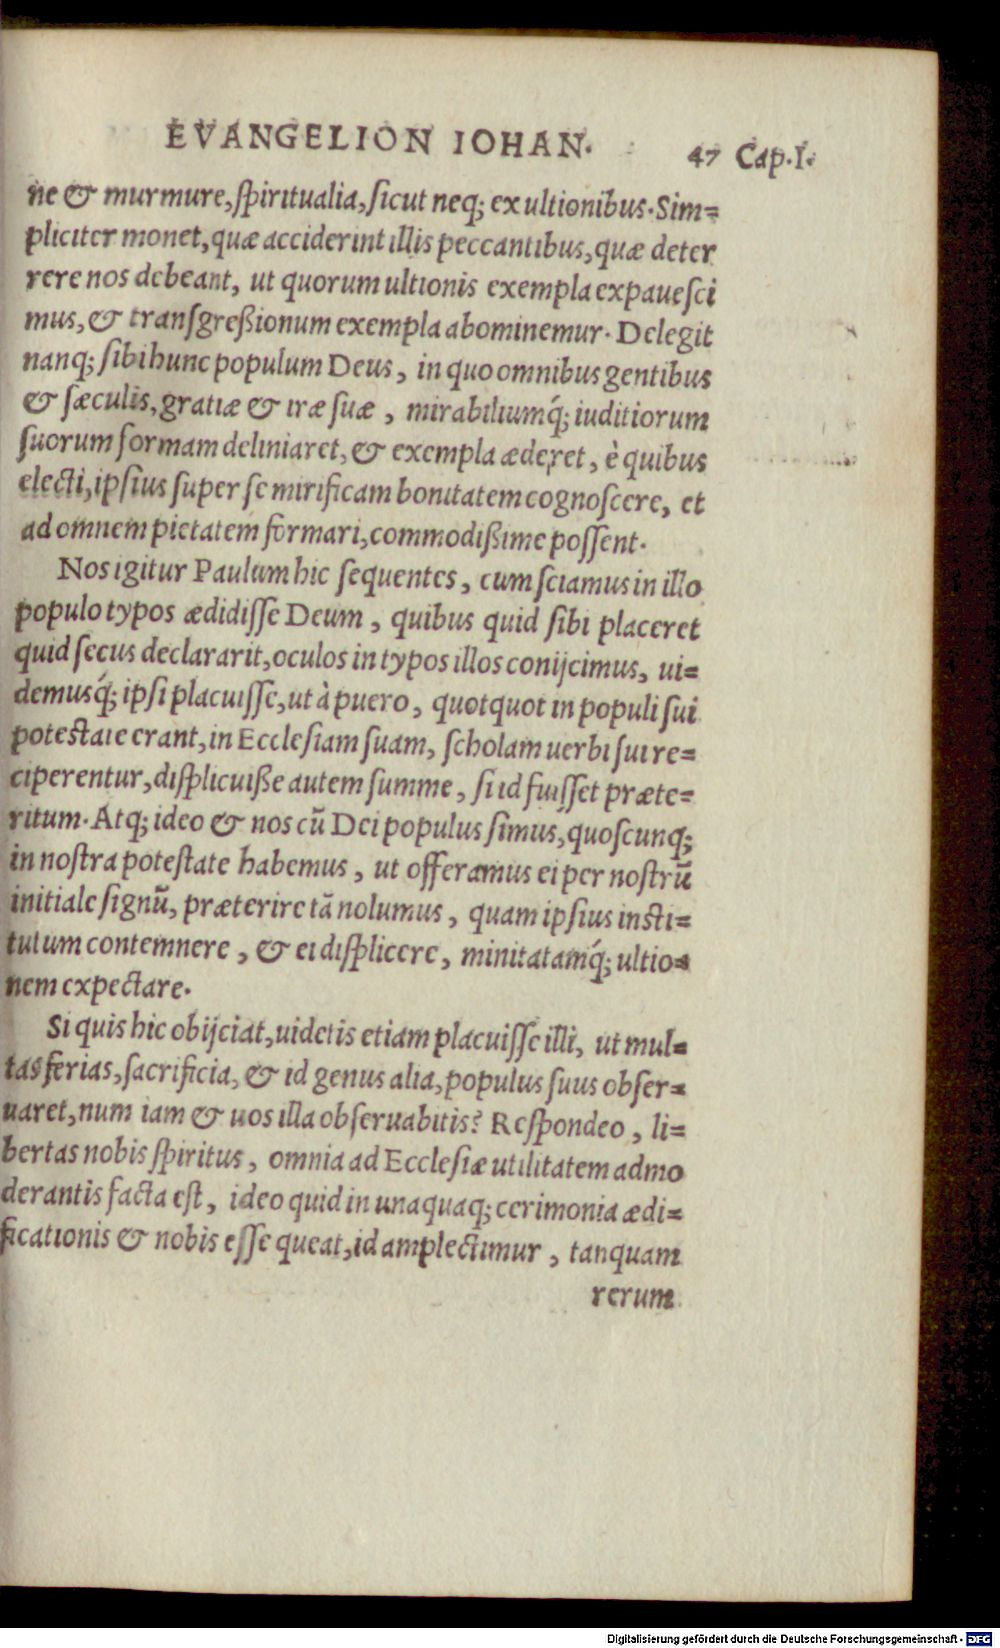 EVANGELION IOHAN. 47 Cap.I.
ne & murmure, ſpiritualia, ſicut neq; ex ultionibus. Sim=
pliciter monet, quæ acciderint illis peccantibus, quæ deter
rere nos debeant, ut quorum ultionis exempla expaueſci
mus, & tranſgreßionum exempla abominemur. Delegit
nanq; ſibi hunc populum Deus, in quo omnibus gentibus
& ſæculis, gratiæ & iræ ſuæ, mirabiliumq́; iuditiorum
ſuorum formam deliniaret, & exempla æderet, è quibus
electi, ipſius ſuper ſe mirificam bonitatem cognoſcere, et
ad omnem pietatem formari, commodißime poſſent.
Nos igitur Paulum hic ſequentes, cum ſciamus in illo
populo typos ædidiſſe Deum, quibus quid ſibi placeret
quid ſecus declararit, oculos in typos illos conijcimus, ui=
demusq́; ipſi placuiſſe, ut à puero, quotquot in populi ſui
poteſtate erant, in Eccleſiam ſuam, ſcholam uerbi ſui re=
ciperentur, diſplicuiße autem ſumme, ſi id fuiſſet præte=
ritum. Atq; ideo & nos cũ Dei populus ſimus, quoſcunq;
in noſtra poteſtate habemus, ut offeramus ei per noſtrũ
initiale ſignũ, præterire tã nolumus, quam ipſius inſti=
tutum contemnere, & ei diſplicere, minitatamq́; ultio=
nem expectare.
Si quis hic obijciat, uidetis etiam placuiſſe illi, ut mul=
tas ferias, ſacrificia, & id genus alia, populus ſuus obſer=
uaret, num iam & uos illa obſeruabitis? Reſpondeo, li=
bertas nobis ſpiritus, omnia ad Eccleſiæ utilitatem admo
derantis facta eſt, ideo quid in unaquaq; cerimonia ædi=
ficationis & nobis eſſe queat, id amplectimur, tanquam
rerum
Digitalisierung gefördert durch die Deutsche Forschungsgemeinschaft - DFG